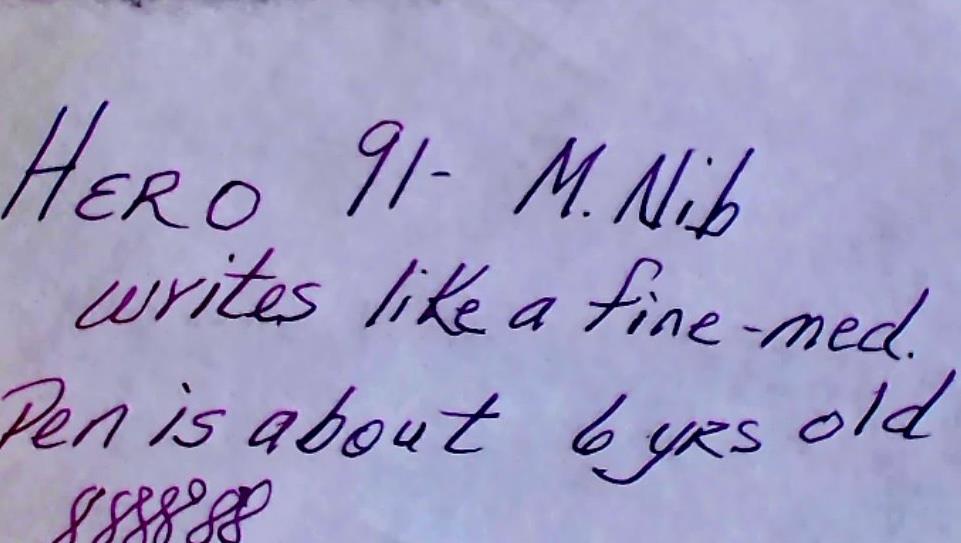 HERO 91- M. Nib
writes like a fine-med.
Pen is about 6 yrs old
888888